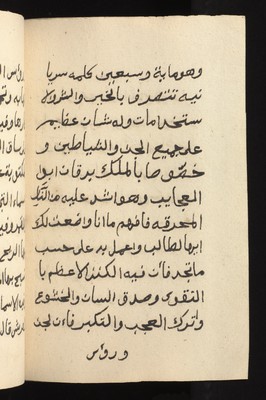 وهوماية وسبعين كلمه سريا
نيه تتصرف بالخير والشر ولا
ستخدامات وله شان عظيم
على جميع الجن والشياطين و
خصوصا بالملك برقان ابوا
العجايب وهو اشد عليه من النار
المحرقه فافهم ما انا واضعت لك
ايها الطالب واعمل به على حسب
ما تجد فان فيه الكنز الاعظم با
التقوى وصدق السان والخشوع
واترك العجب والتكبر فان لجد
ورؤس